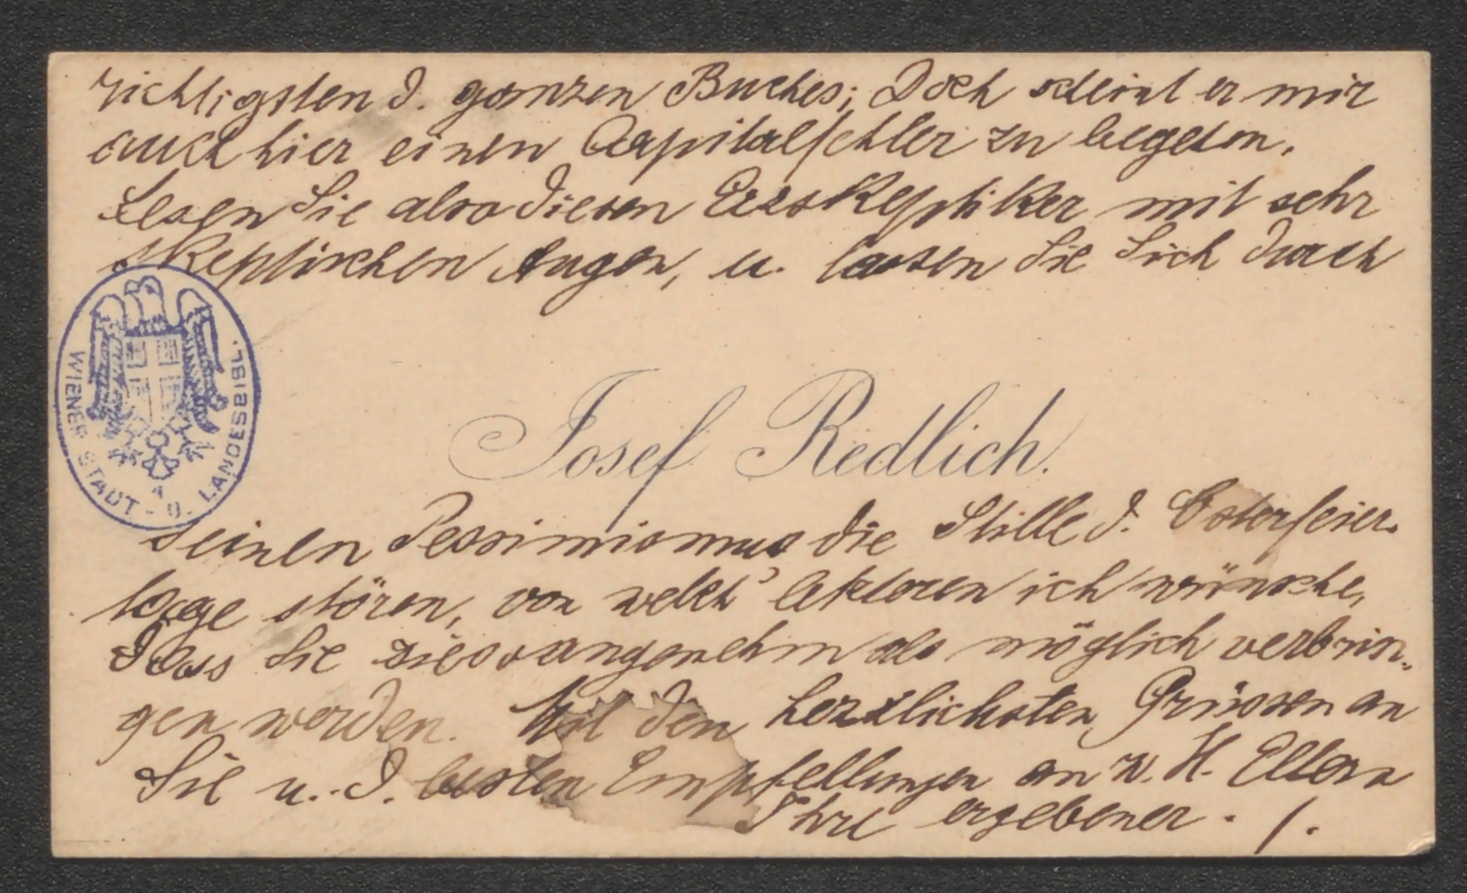 richtigsten d. ganzen Buches; Doch scheint er mir
auch hier einen Capitalfehler zu begehen.
Lesen Sie also diesen Erzskeptiker mit sehr
skeptischen Augen, u. lassen Sie Sich durch
WIENER STADT - U. LANDESBIBL.
Josef Redlich.
seinen Pessimismus die Stille d. Osterfeier-
tage stören, von welch' letzteren ich wünsche,
dass Sie sie so angenehm als möglich verbrin-
gen werden. Mit den herzlichsten Grüssen an
Sie u. d. besten Empfellungen an w. H. Eltern
Ihr ergebener . /.